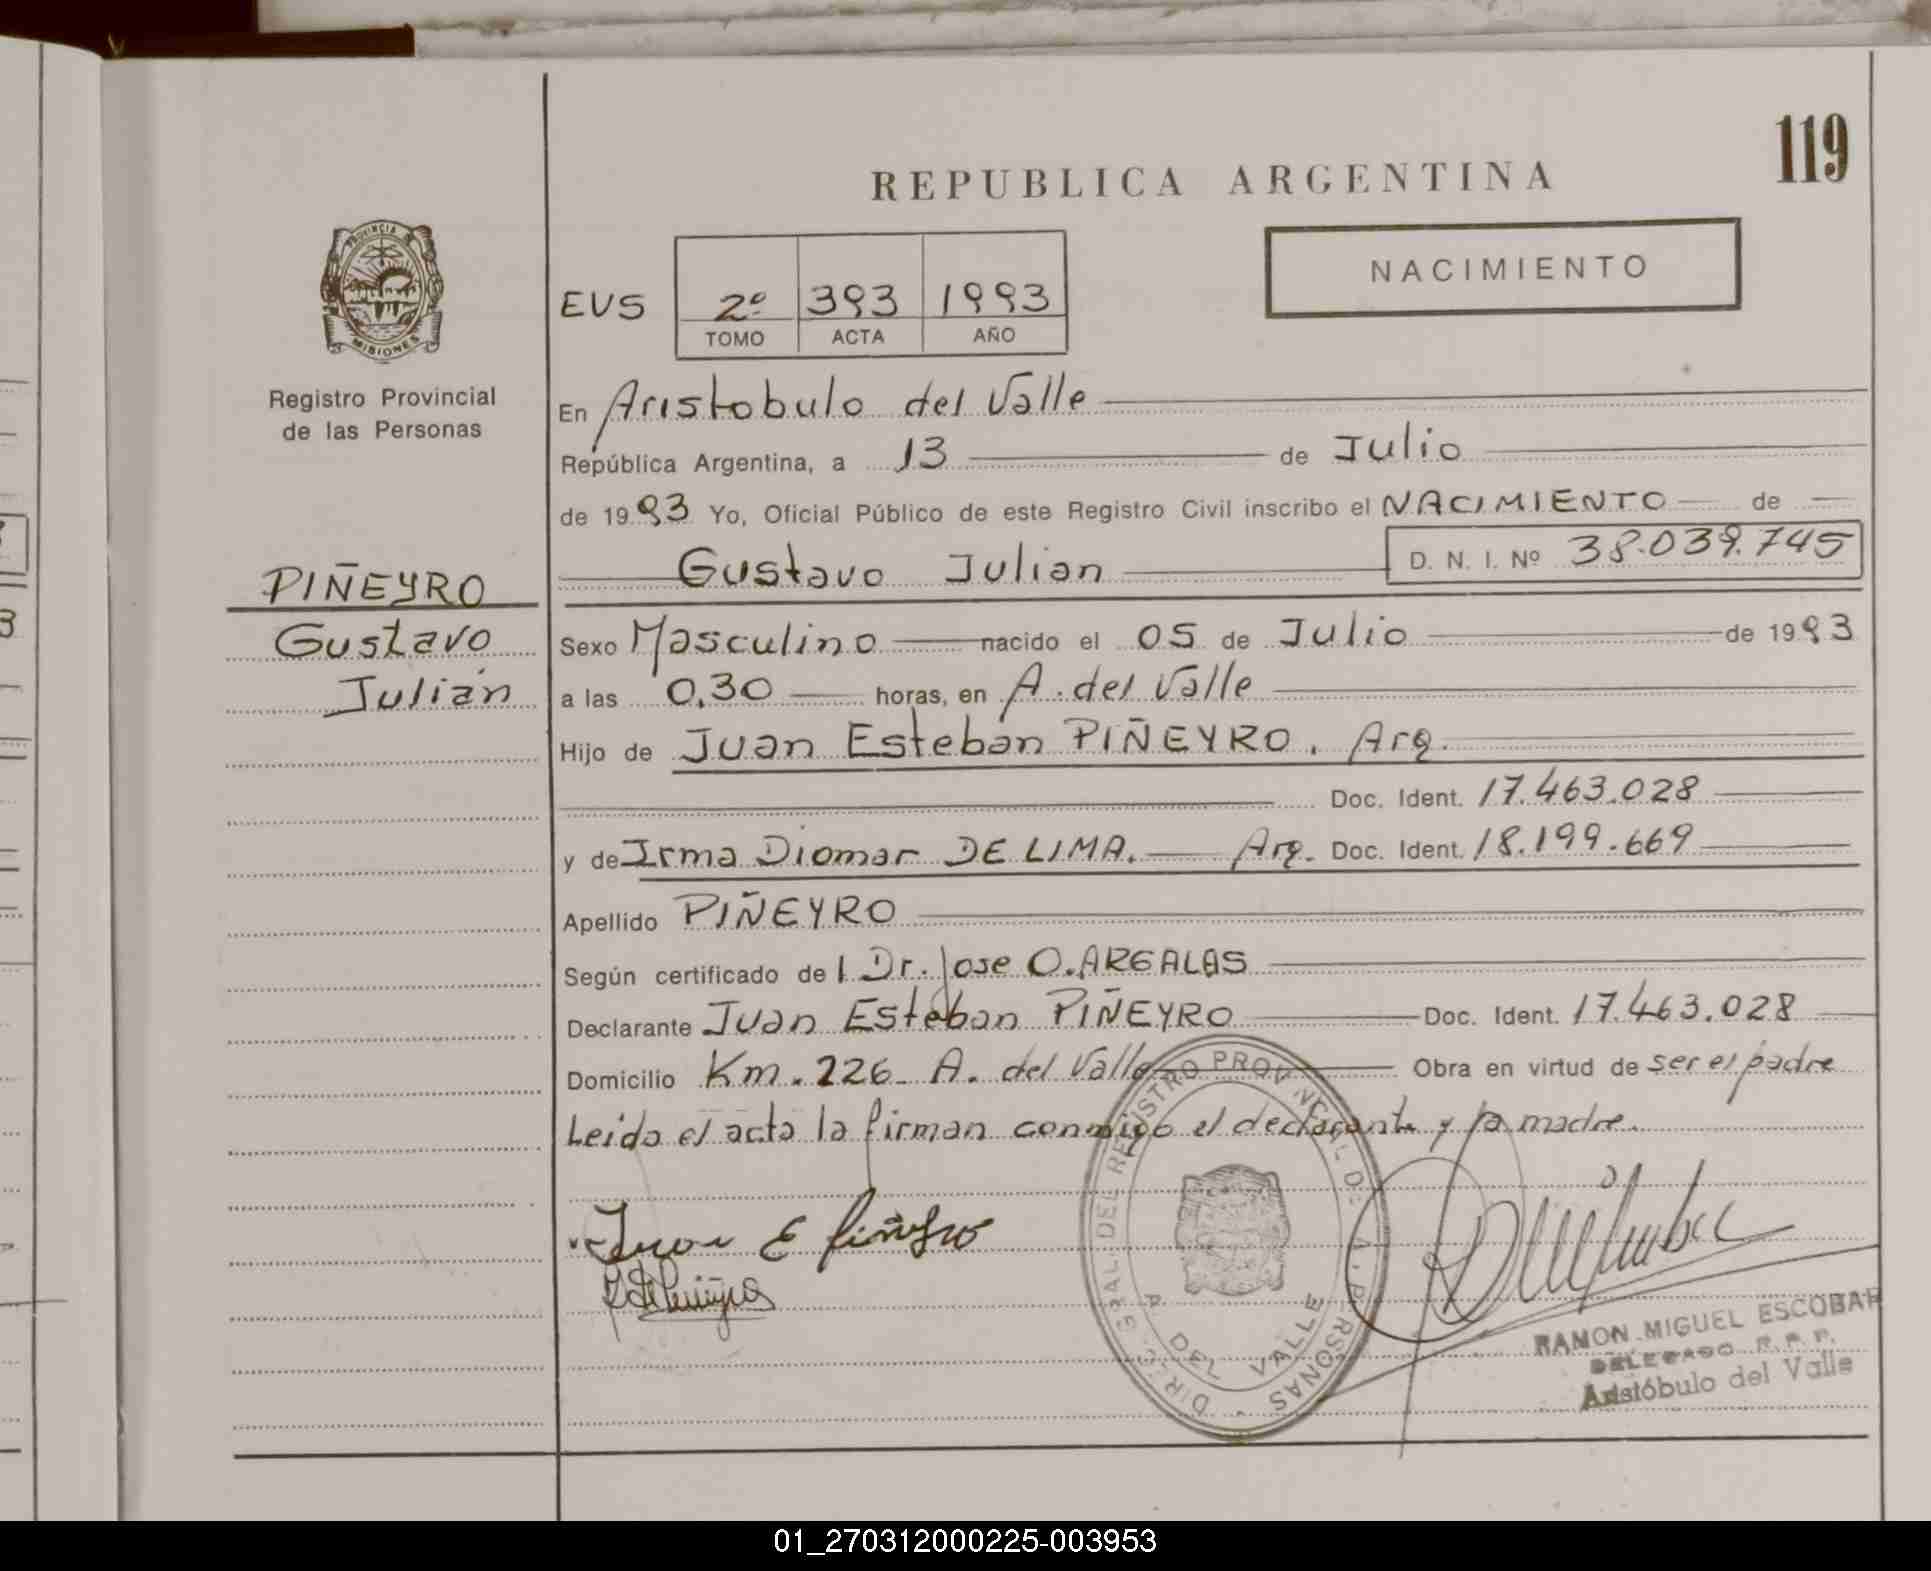 119
REPUBLICA ARGENTINA
PROVINCIA DE
MISIONES
Registro Provincial
de las Personas
NACIMIENTO
EVS 2º 393 1993
TOMO ACTA AÑO
En Aristobulo del Valle
República Argentina, a 13 de Julio
de 1993 Yo, Oficial Público de este Registro Civil inscribo el NACIMIENTO de
Gustavo Julian D. N. I. Nº 38.039.745
PIÑEYRO
Gustavo
Julián
Sexo Masculino nacido el 05 de Julio de 1993
a las 0,30 horas, en A. del Valle
Hijo de Juan Esteban PIÑEYRO. Arg.
Doc. Ident. 17.463.028
y de Irma Diomar DE LIMA. Arg. Doc. Ident. 18.199.669
Apellido PIÑEYRO
Según certificado del Dr. Jose O. ARGALAS
Declarante Juan Esteban PIÑEYRO Doc. Ident. 17.463.028
Domicilio Km. 226 A. del Valle Obra en virtud de ser el padre
Leida el acta la firman conmigo el declarante y la madre.
Juan E Piñeyro
DIREC. GRAL. DEL REGISTRO PROVINCIAL DE LAS PERSONAS
A. DEL VALLE
RAMON MIGUEL ESCOBAR
DELEGADO R.P.P.
Aristóbulo del Valle
01_270312000225-003953